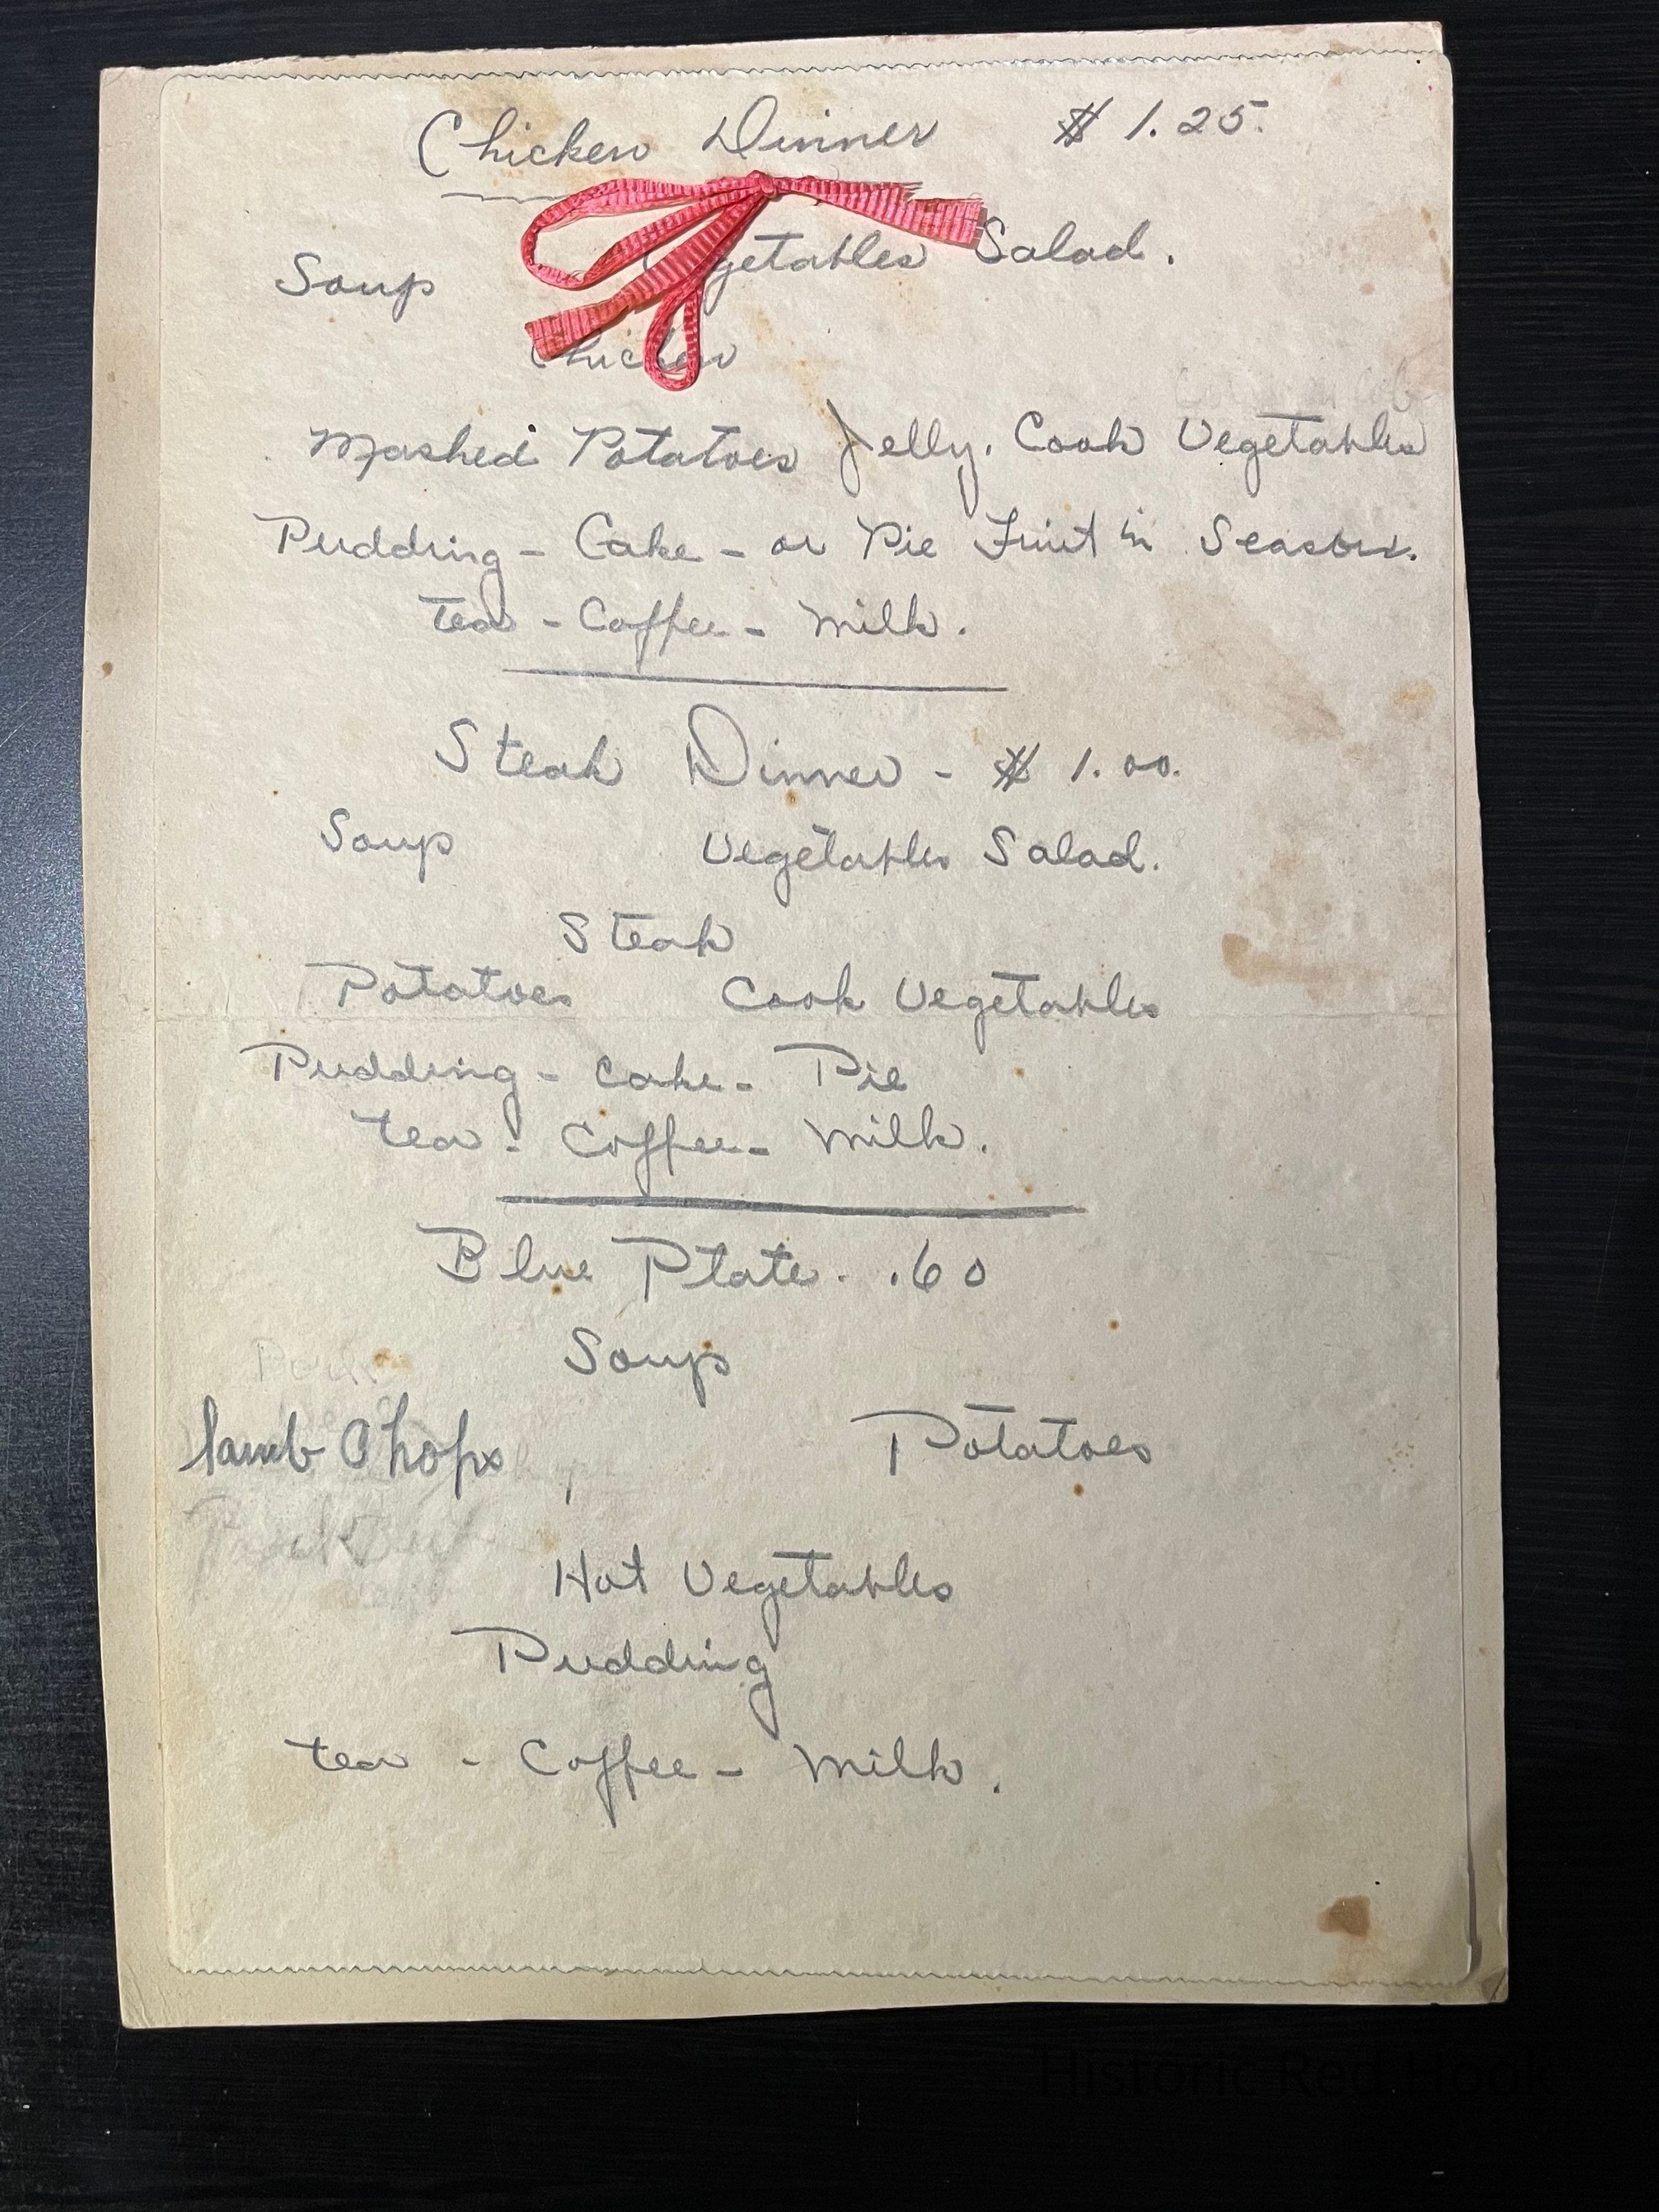 Chicken Dinner $ 1.25.
Soup Vegetables Salad.
Chicken
Mashed Potatoes Jelly. Cook Vegetables
Pudding - Cake - or Pie Fruit in Season.
tea - Coffee - Milk.
Steak Dinner - $ 1.00.
Soup Vegetables Salad.
Steak
Potatoes Cook Vegetables
Pudding - Cake - Pie
tea - Coffee - Milk.
Blue Plate . .60
Soup
lamb Chops Potatoes
Hot Vegetables
Pudding
tea - Coffee - Milk.
Historic Red Hook